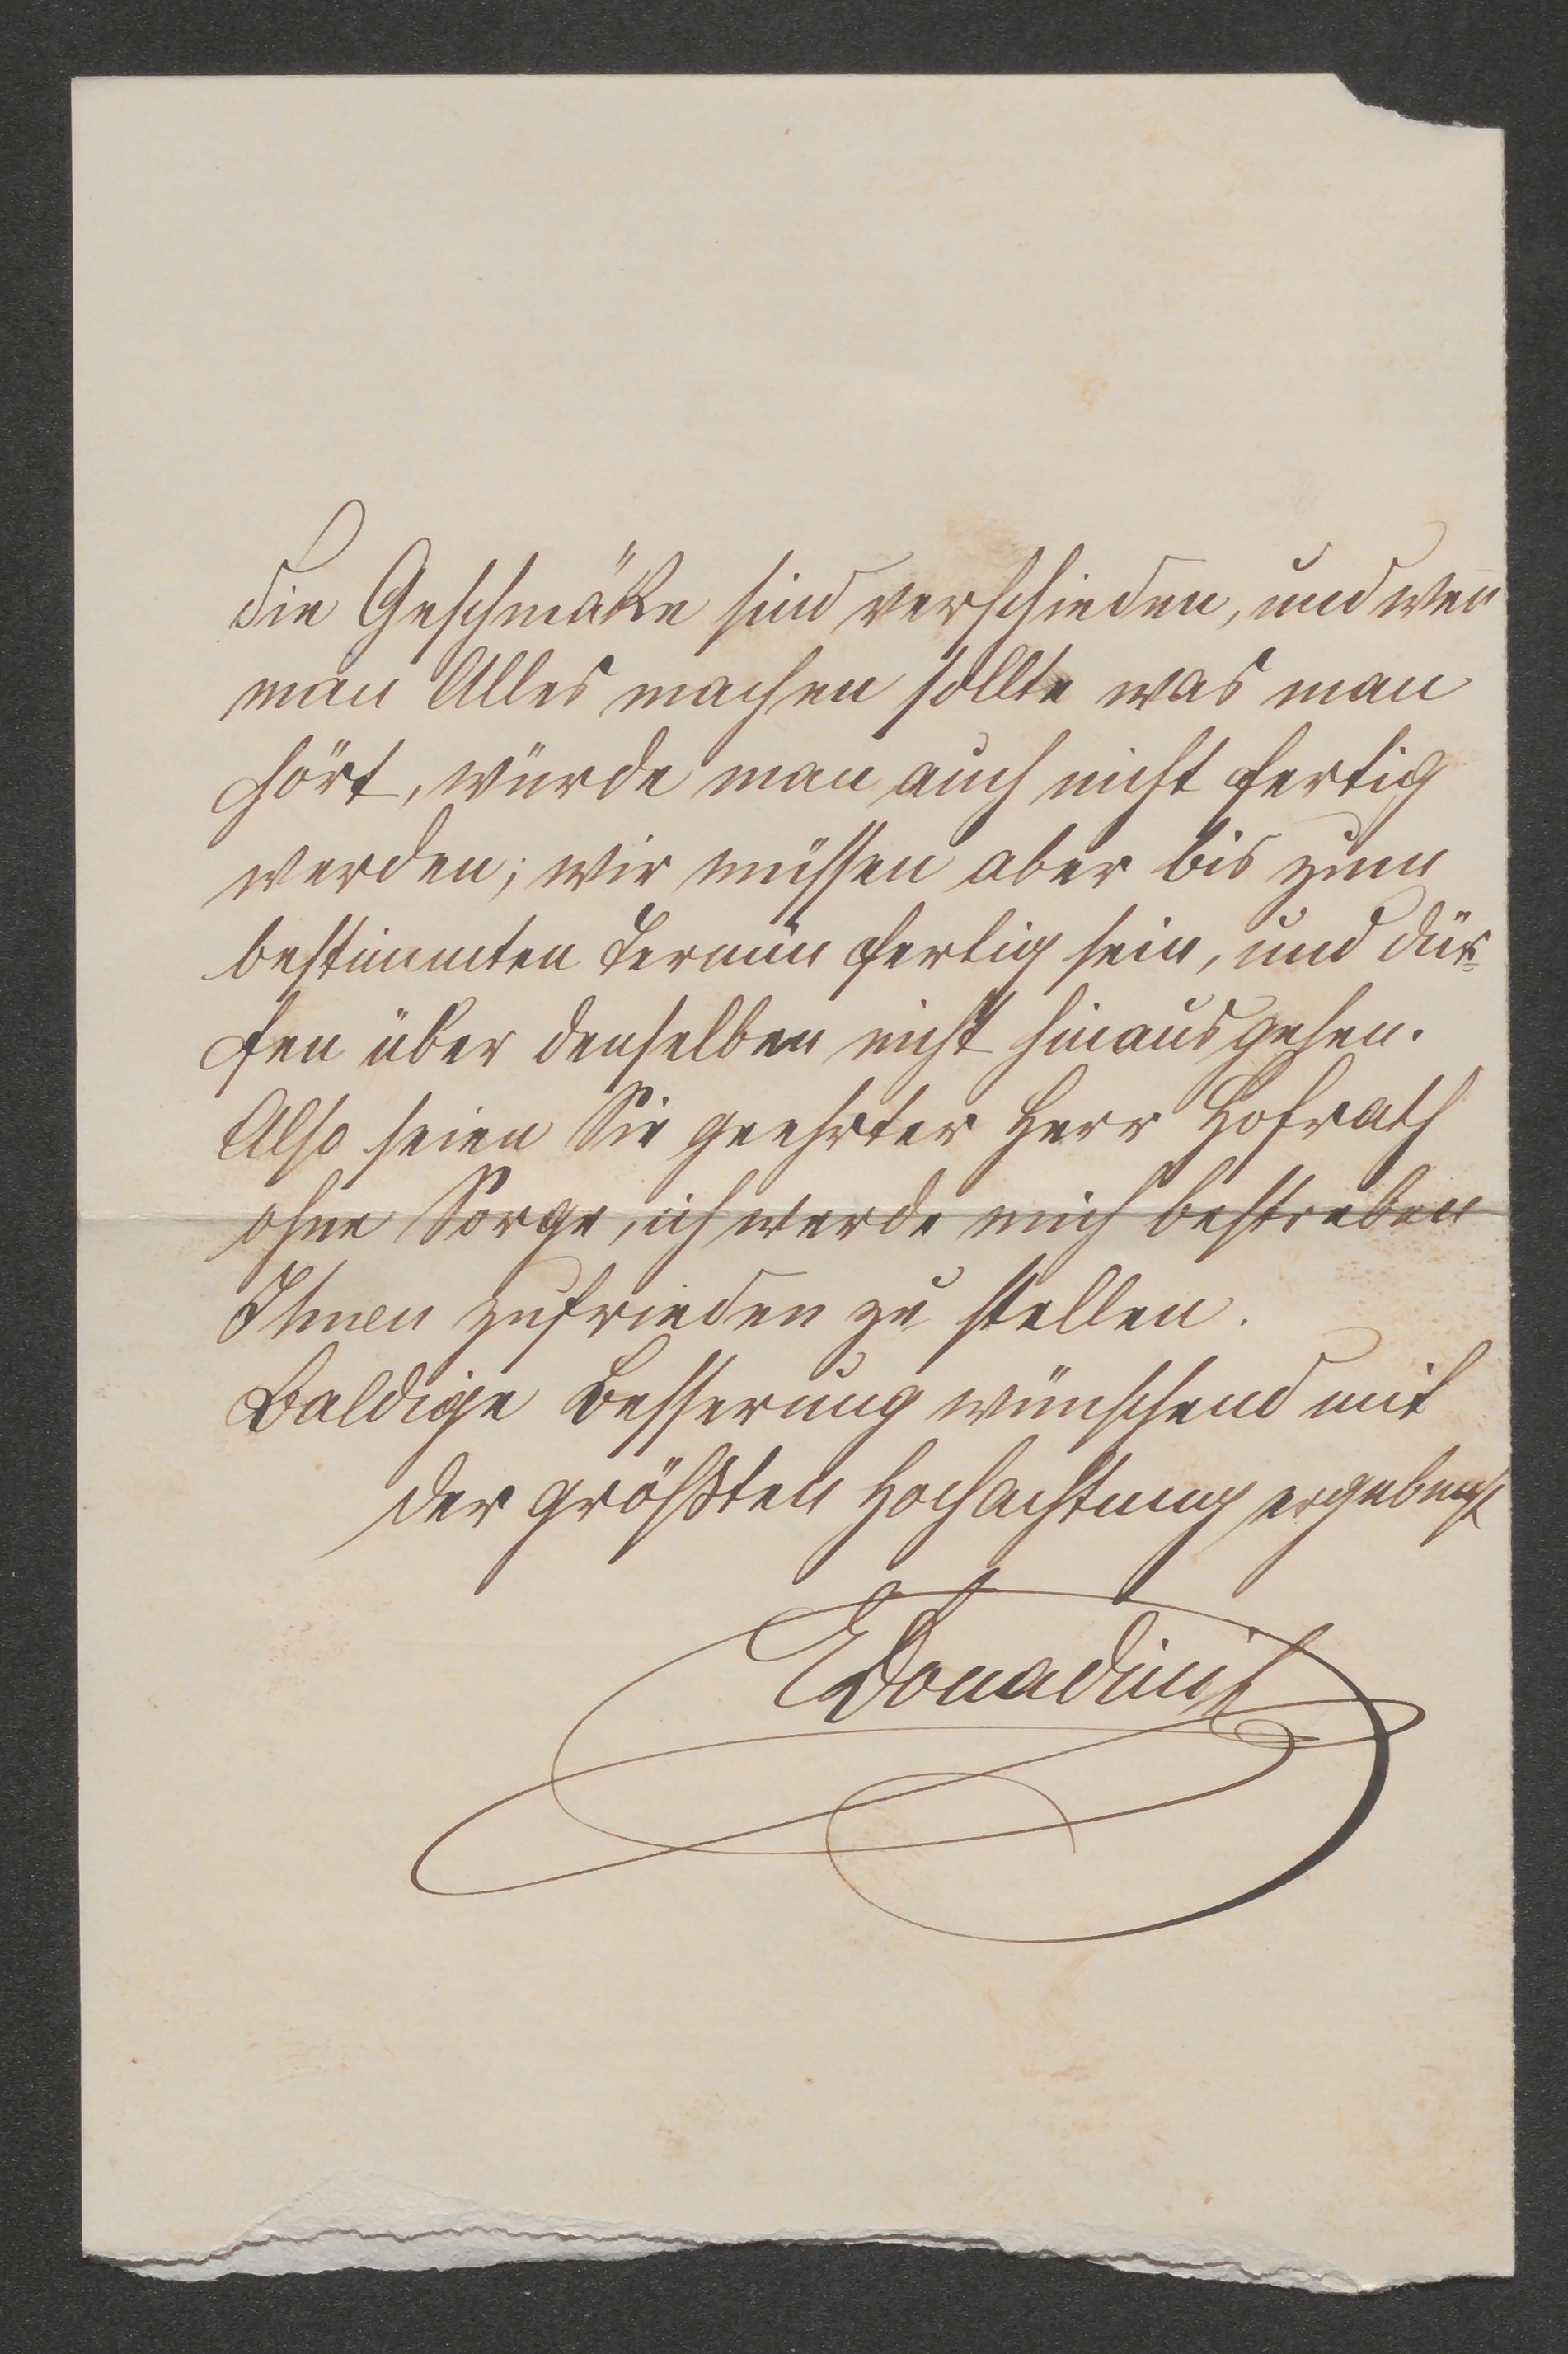 die Geschmäke sind verschieden, und weñ
man Alles machen sollte was man
hört, würde man auch nicht fertig
werden; wir müssen aber bis zum
bestimmten Termin fertig sein, und dür-
fen über denselben nicht hinausgehen.
Also seien Sie geehrter Herr Hofrath
ohne Sorge, ich werde mich bestreben
Ihnen zufrieden zu stellen.
Baldige Besserung wünschend mit
der größten Hochachtung ergebenst
EDonadini